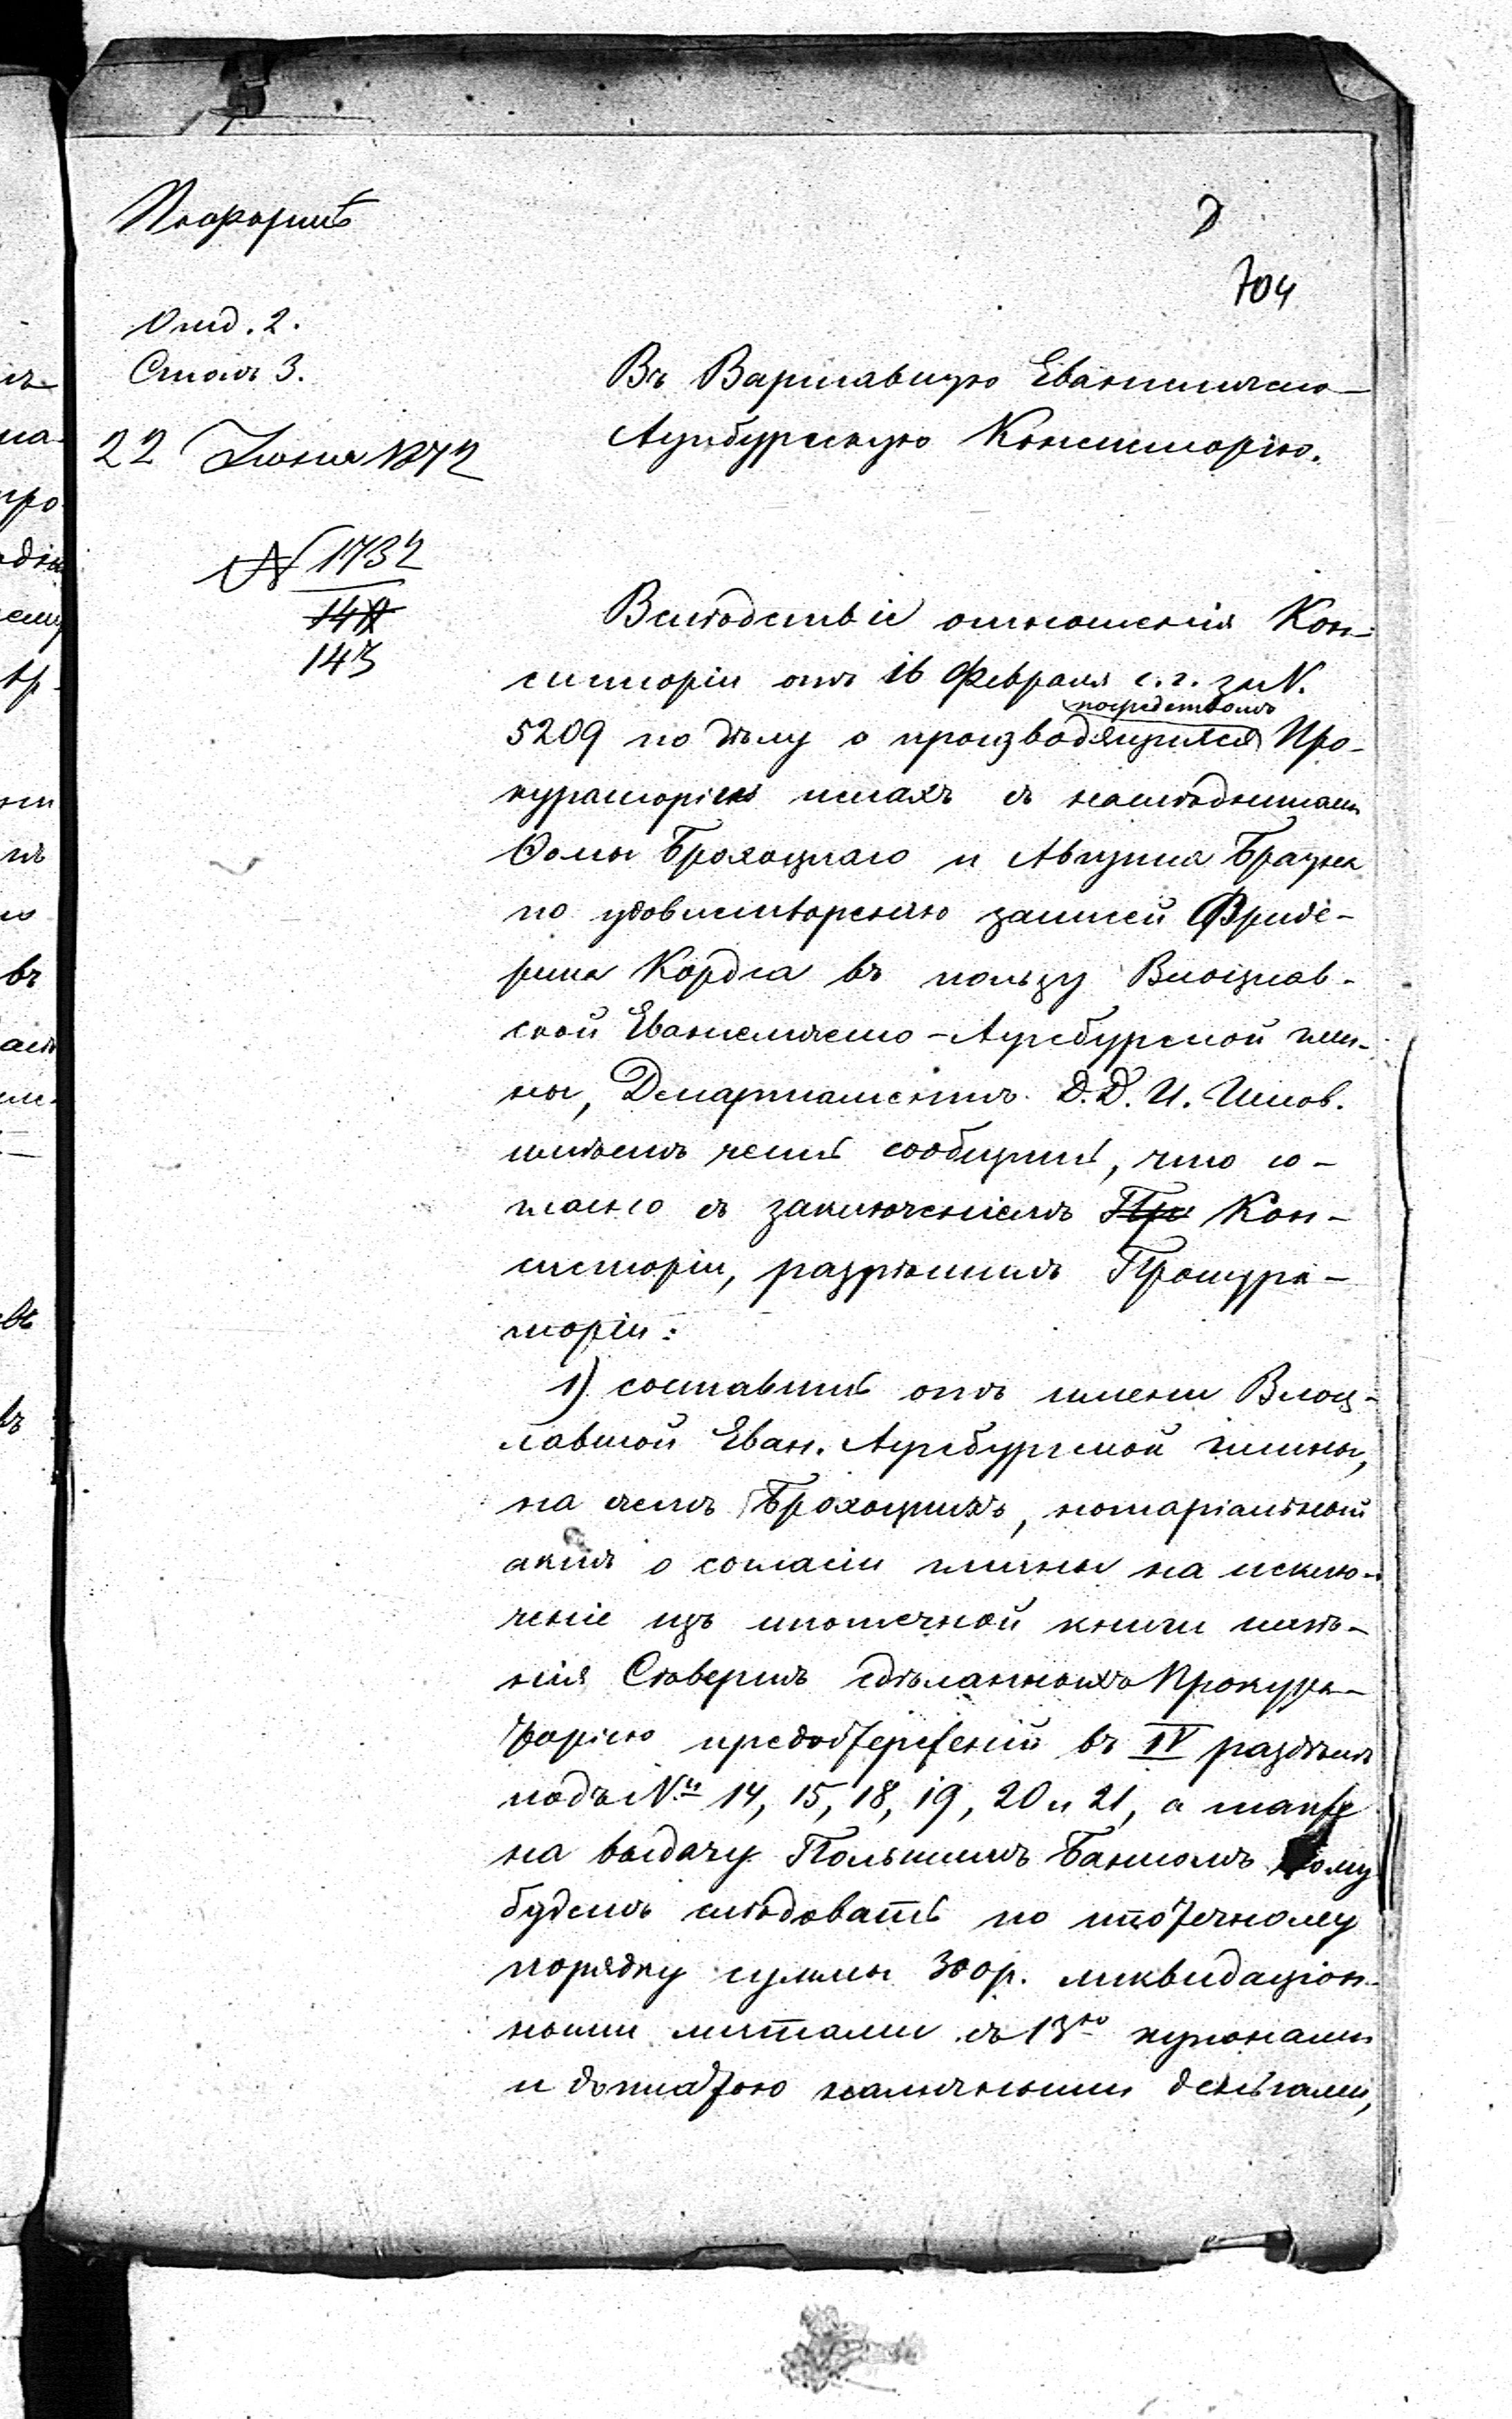 704
Отд. 2.
Столъ 3.
22 Iюня 1872
№ 1732
143
Въ Варшавскую Евангелическо-
Аугсбургскую Консисторію.
Вслѣдствіе отношенія Кон-
систоріи отъ 16 Февраля с. г. за N.
посредствомъ
5209 по дѣлу о производящихся Про-
кураторіею искахъ съ наслѣдниками
Ѳомы Брохоцкаго и Августа Брауна
по удовлетворенію записей Фриде-
рика Кордса въ пользу Влоцлав-
ской Евангелическо-Аугсбургской гми-
ны, Департаментъ Д. Д. И. Испов.
имѣетъ честь сообщить, что со-
гласно съ заключеніемъ Пр Кон-
систоріи, разрѣшилъ Прокура-
торіи:
1) составить отъ имени Влоц-
лавской Еван. Аугсбургской гмины,
на счетъ Брохоцкихъ, нотаріальный
актъ о согласіи гмины на исклю-
ченіе изъ ипотечной книги имѣ-
нія Сковеркъ сдѣланныхъ Прокура-
торіею предостереженій въ IV раздѣлѣ
подъ №№ 14, 15, 18, 19, 20 и 21, а также
на выдачу Польскимъ Банкомъ кому
будетъ слѣдовать по ипотечному
порядку суммы 300 р. ликвидаціон-
ными листами съ 13ю купонами
и доплатою наличными деньгами,